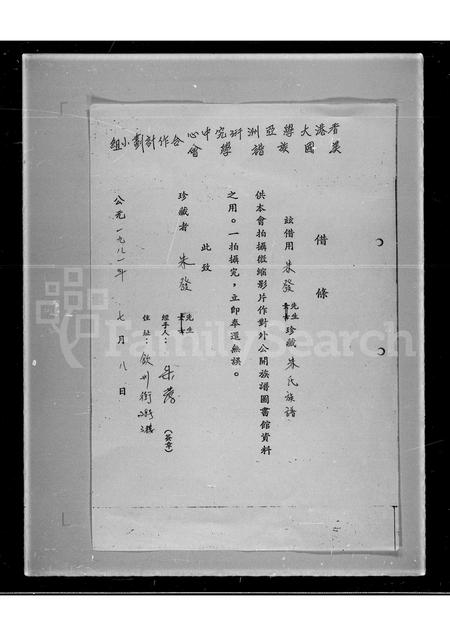 香港大學亞洲研究中心
美國族譜學會
合作計劃小組
借條
茲借用朱發先生珍藏朱氏族譜
供本會拍攝微縮影片作對外公開族譜圖書館資料
之用。一拍攝完，立即奉還無誤。
此致
珍藏者 朱發 先生
經手人： (簽章)
住址：欽州街
公元一九八一年 七月 八日
FamilySearch